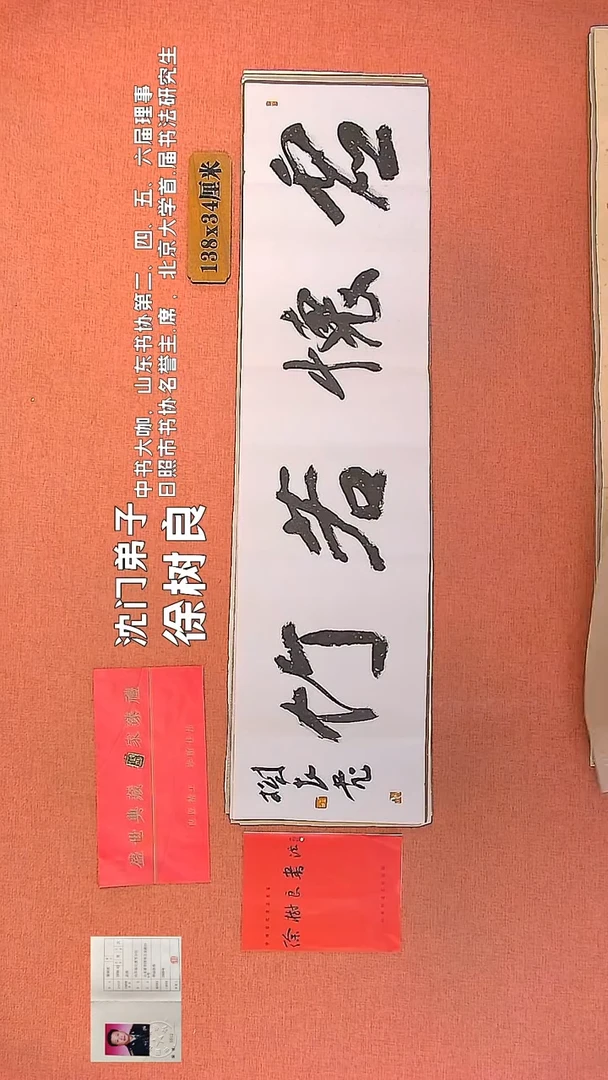 沈门弟子
徐树良
中书大咖，山东书协第二、四、五、六届理事
日照市书协名誉主席，北京大学首届书法研究生
138x34厘米
虚懷若竹
樹良書
盛世典藏 國家臻禮
徐樹良書法